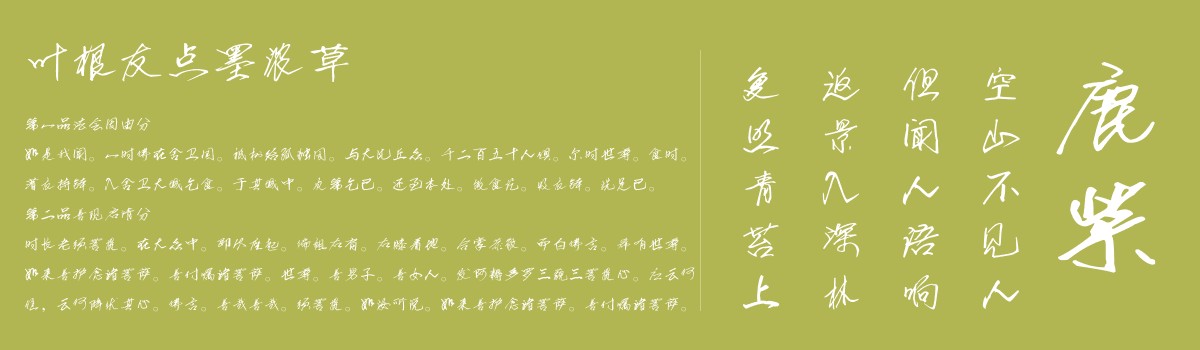 叶根友点墨草
第一品法会因由分
如是我闻。一时佛在舍卫国。祇树给孤独园。与大比丘众。千二百五十人俱。尔时世尊。食时。
著衣持钵。入舍卫大城乞食。于其城中。次第乞已。还至本处。饭食讫。收衣钵。洗足已。
第二品善现启请分
时长老须菩提。在大众中。即从座起。偏袒右肩。右膝着地。合掌恭敬。而白佛言。希有世尊。
如来善护念诸菩萨。善付嘱诸菩萨。世尊。善男子。善女人。发阿耨多罗三藐三菩提心。应云何
住，云何降伏其心。佛言。善哉善哉。须菩提。如汝所说。如来善护念诸菩萨。善付嘱诸菩萨。
鹿柴
空山不见人
但闻人语响
返景入深林
复照青苔上